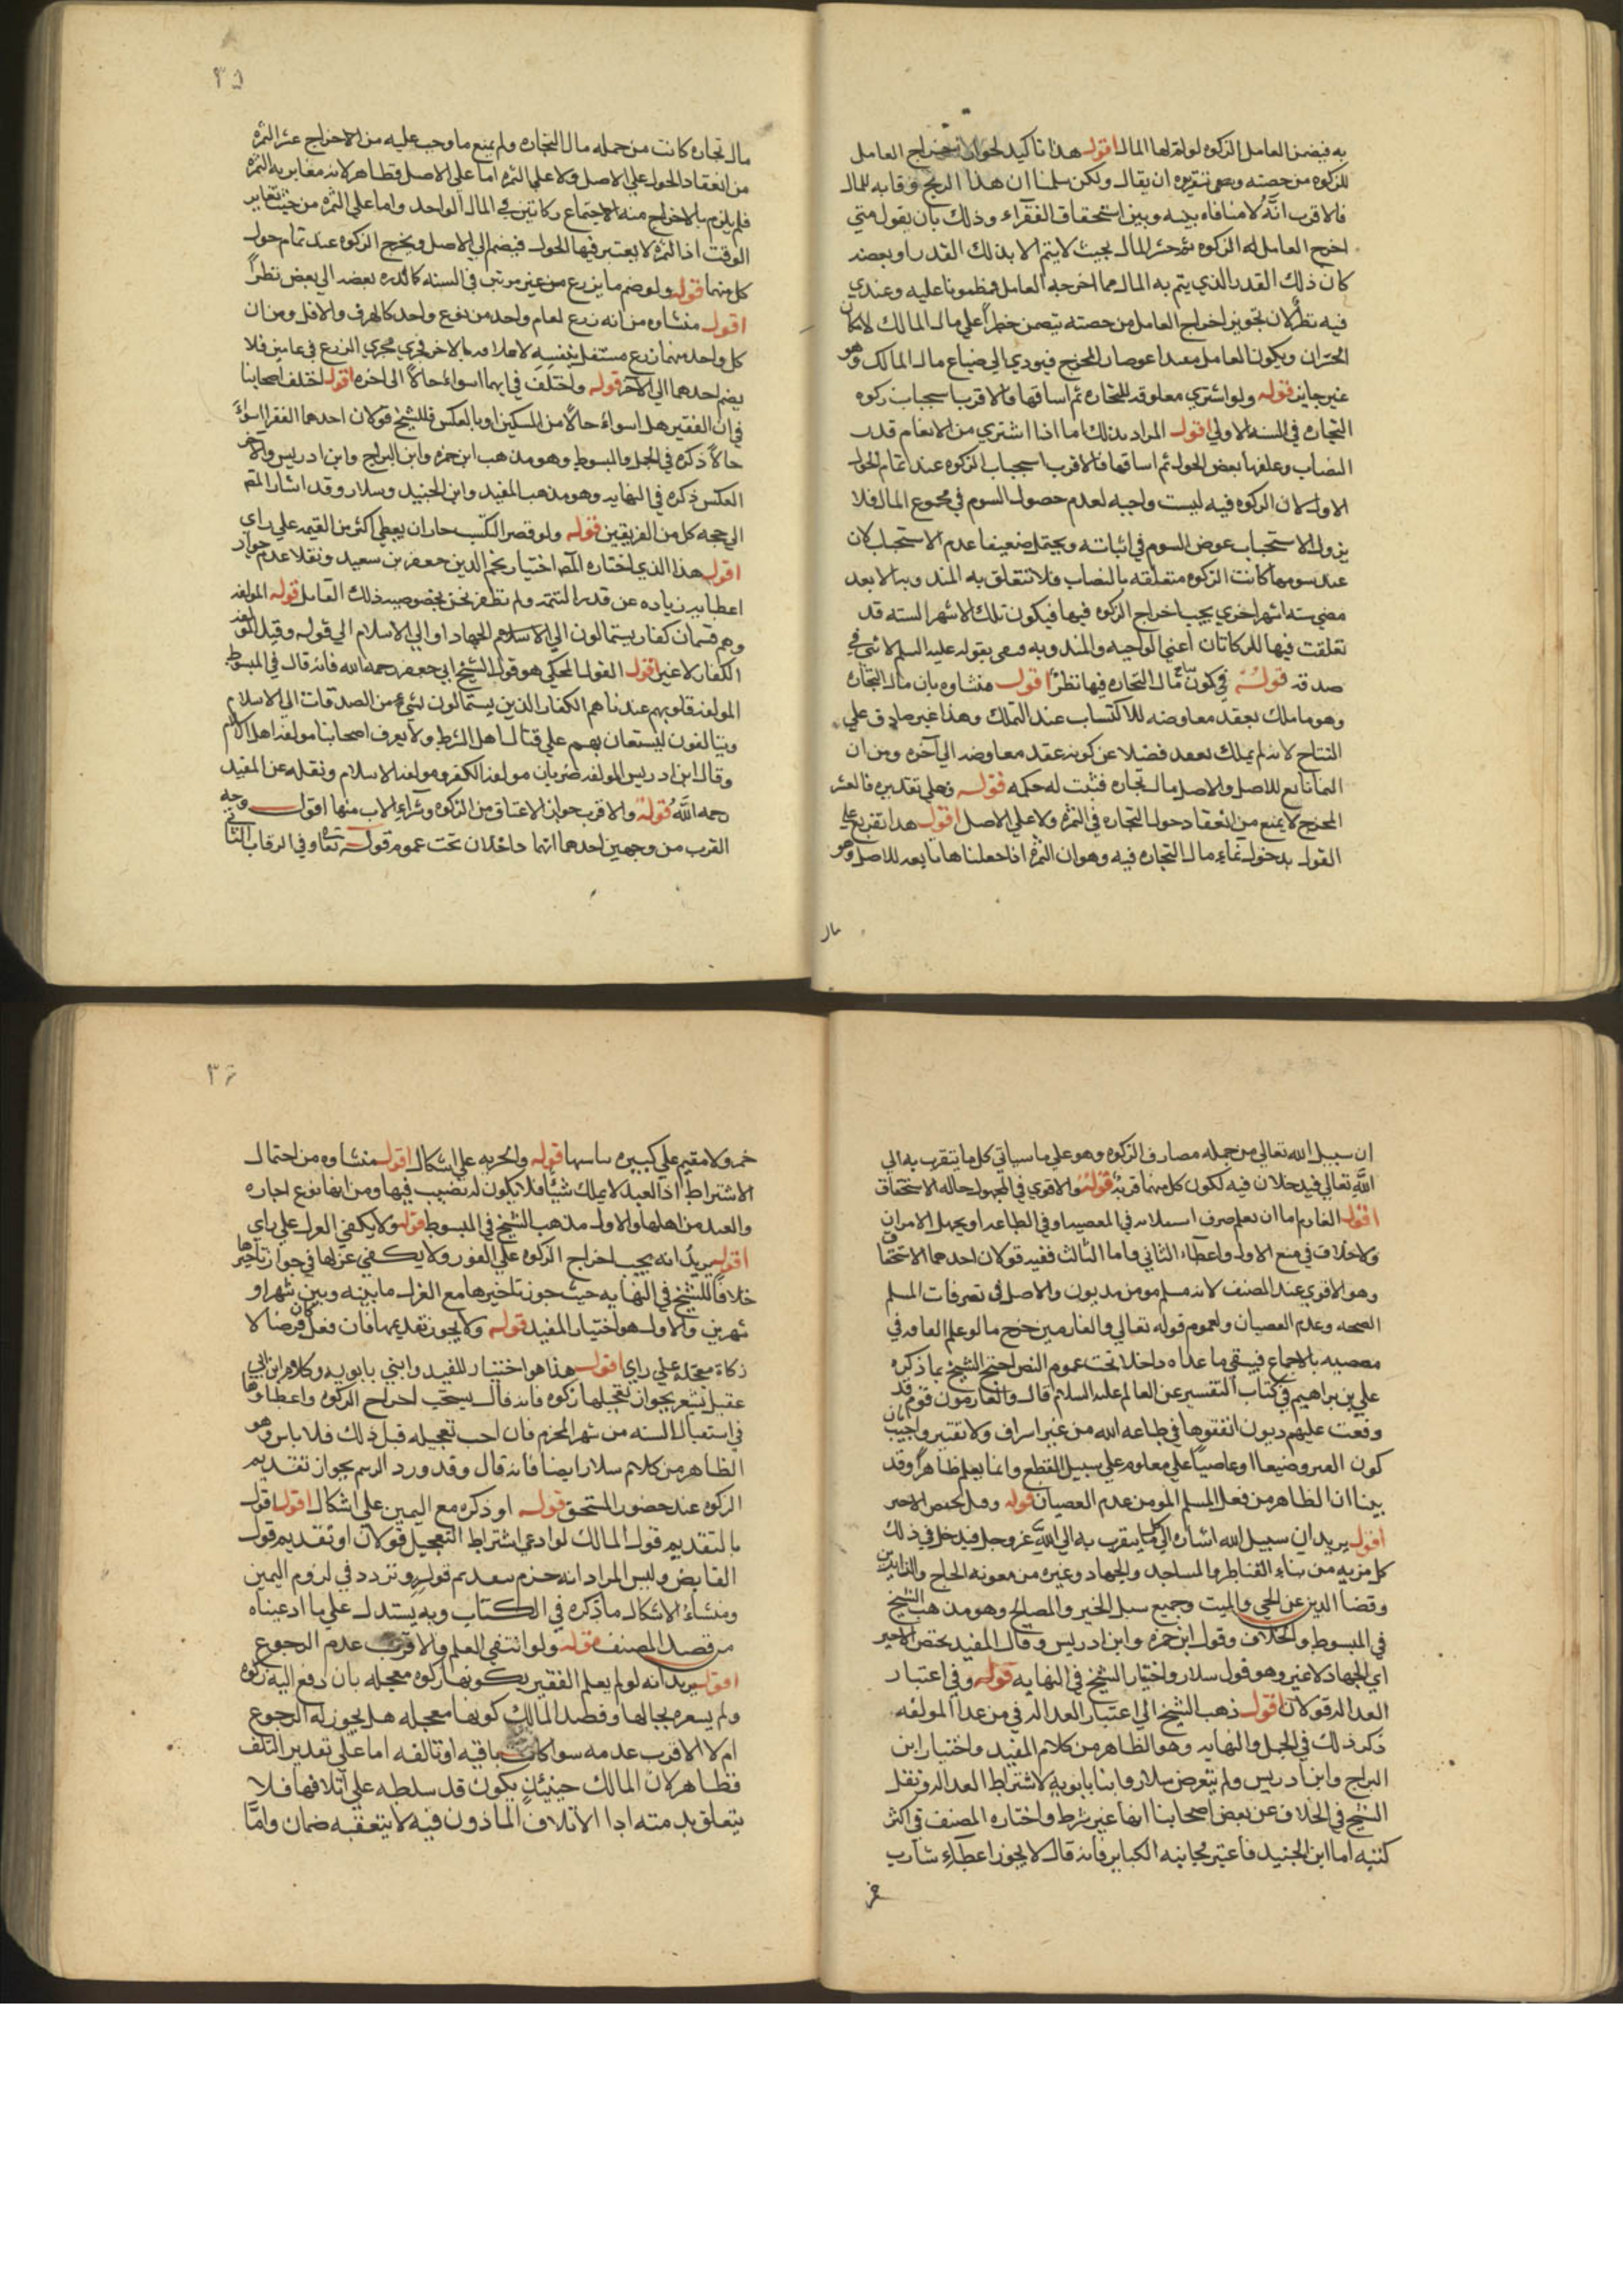 به فيضمن العامل الزكوه لو لفه لها المال اقول هذا تاكيد لجواز اخراج العامل
للزكوه من حصته وهي تنزيره ان يقال ولكن سلمنا ان هذا الربح وقايه للمال
فالاقرب انه لا منافاه بينه وبين استحقاق الفقراء وذلك بان يقول متي
اخرج العامل له الزكوه ثم خسر المال بحيث لا يتم الا بذلك القدر او بعضه
كان ذلك القدر الذي يتم به المال مما اخرجه العامل مضمونا عليه وعندي
فيه نظر لان تجويز اخراج العامل من حصته يتضمن خطرا علي مال المالك لامكان
الخسران ويكون العامل معسرا عوض المخرج فيودي الي ضياع مال المالك وهو
غير جايز قوله ولو اشتري معلوفه للتجاره ثم اسامها فالاقرب استحباب زكوه
التجاره في السنه الاولي اقول المراد بذلك ما اذا اشتري من الانعام قدر
النصاب وعلفها بعض الحول ثم اسامها فالاقرب استحباب الزكوه عند تمام الحول
الاول لان الزكوه فيه ليست واجبه لعدم حصول السوم في مجموع المال فلا
يزول الاستحباب عوض السوم في اثباته ويحتمل ضعيفا عدم الاستحباب لان
عند سومها كانت الزكوه متعلقه بالنصاب فلا تتعلق به المند وبه الا بعد
مضي سته اشهر اخري يجب اخراج الزكوه فيها فيكون تلك الاشهر السته قد
تعلقت فيها للزكاتان اعني الواجبه والمندوبه وهي بقوله عليه السلم لا ثني في
صدقه قوله في كون نتاج مال التجاره فيها نظر اقول منشاوه بان مال التجاره
وهو ما ملك بعقد معاوضه للاكتساب عند التملك وهذا غير صادق علي
النتاج لانه لم يملك بعقد فضلا عن كونه عقد معاوضه الي آخره ومن ان
النما تابع للاصل والاصل مال تجاره فثبت له حكمه قوله وعلي تقديره فالعشر
المخرج لا يمنع من انعقاد حول التجاره في الثمره ولا علي الاصل اقول هذا تفريع علي
القول بدخول نماء مال التجاره فيه وهو ان الثمره اذا جعلناها تابعه للاصل وهو
مال
٣٥
مال تجاره كانت من جمله مال التجاره ولم يمنع ما وجب عليه من الاخراج عشر الثمره
من انعقاد الحول علي الاصل ولا علي الثمره اما علي الاصل فظاهر لانه مغاير به الثمره
فلم يلزم بالاخراج منه الاجتماع زكاتين في المال الواحد واما علي الثمره من حيث تغاير
الوقت اذ الثمره لا يعتبر فيها الحول فيضم الي الاصل ويخرج الزكوه عند تمام حول
كل منهما قوله ولو ضم ما يزرع من غير مرتين في السنه كالذره بعضه الي بعض نظرا
اقول منشاوه من انه زرع لعام واحد من نوع واحد كالهرف والافل ومن ان
كل واحد منهما زرع مستقل بنفسه لا علاقه بالاخر فجري مجري الزرع في عامين فلا
يضم احدهما الي الاخر قوله واختلف في ايهما اسواء حالا الي اخره اقول اختلف اصحابنا
في ان الفقير هل اسواء حالا من المسكين او بالعكس فللشيخ قولان احدهما الفقراء اسوء
حالا ذكره في الجمل والمبسوط وهو مذهب ابن حمزه وابن البراج وابن ادريس والاخر
العكس ذكره في النهايه وهو مذهب المفيد وابن الجنيد وسلار وقد اشار المص
الي حجه كل من الفريقين قوله ولو قصر التكسب جاز ان يعطي اكثر من القيمه علي راي
اقول هذا الذي اختاره المص اختيار نجم الدين جعفر بن سعيد ونقلا عدم جواز
اعطايه زياده عن قدر التتمه ولم نظفر نحن بخصوصيه ذلك القايل قوله المولفه
وهم قسمان كفار يستمالون الي الاسلام الجهاد او الي الاسلام الي قوله وقيل المولفه
الكفار لا غير اقول القول المحكي هو قول الشيخ ابي جعفر رحمه الله فانه قال في المبسوط
المولفه قلوبهم عندنا هم الكفار الذين يستمالون بشيء من الصدقات الي الاسلام
ويتالفون ليستعان بهم علي قتال اهل الشرك ولا يعرف اصحابنا مولفه اهل الاسلام
وقال ابن ادريس المولفه ضربان مولفه الكفر ومولفه الاسلام ونقله عن المفيد
رحمه الله قوله والاقرب جواز الاعتاق من الزكوه وشراء الاب منها اقول وجه
القرب من وجهين احدهما انهما داخلان تحت عموم قوله تعاوفي الرقاب الثاني
ان سبيل الله تعالي من جمله مصارف الزكوه وهو علي ما سياتي كل ما يتقرب به الي
الله تعالي فيدخلان فيه لكون كل منهما قربه قوله والاقوي في المجهول حاله الاستحقاق
اقول الغارم اما ان يعلم صرف استدانه في المعصيه او في الطاعه او يجهل الامران
ولا خلاف في منع الاول واعطاء الثاني واما الثالث ففيه قولان احدهما الاستحقاق
وهو الاقوي عند المصنف لانه مسلم مومن مديون والاصل في تصرفات المسلم
الصحه وعدم العصيان ولعموم قوله تعالي والغارمين خرج ما لو علم انفاقه في
معصيه بالاجماع فيبقي ما عداه داخلا تحت عموم النص احتج الشيخ بما ذكره
علي بن ابراهيم في كتاب التفسير عن العالم عليه السلام قال والغارمون قوم قد
وقعت عليهم ديون انفقوها في طاعه الله من غير اسراف ولا تقتير واجيب بان
كون الصر وضيعا او عاصيا علي معلوم علي سبيل القطع وانما يعلم ظاهرا وقد
بينا ان الظاهر من فعل المسلم المومن عدم العصيان قوله وقيل يختص الاخير
اقول يريد ان سبيل الله اشاره الي كل ما يتقرب به الي الله عز وجل فيدخل في ذلك
كل مزيه من بناء القناطر والمساجد والجهاد وغيره من معونه الحاج والزايرين
وقضا الدين عن الحي والميت وجميع سبل الخير والمصالح وهو مذهب الشيخ
في المبسوط والخلاف وقول ابن حمزه وابن ادريس وقال المفيد يختص الاخير
اي الجهاد لا غير وهو قول سلار واختيار الشيخ في النهايه قوله وفي اعتبار
العداله قولان اقول ذهب الشيخ الي اعتبار العداله في من عدا المولفه
ذكر ذلك في الجمل والنهايه وهو الظاهر من كلام المفيد واختيار ابن
البراج وابن ادريس ولم يتعرض سلار وابنا بابويه لاشتراط العداله ونقل
الشيخ في الخلاف عن بعض اصحابنا انها غير شرط واختاره المصنف في اكثر
كتبه اما ابن الجنيد فاعتبر مجانبه الكباير فانه قال لا يجوز اعطاء شارب
خمر
٣٦
خمر ولا مقيم علي كبيره قوله والحريه علي اشكال اقول منشاوه من احتمال
الاشتراط اذ العبد لا يملك شيئا فلا يكون له نصيب فيها ومن انها نوع اجاره
والعبد من اهلها والاول مذهب الشيخ في المبسوط قوله ولا يكفي العزل علي راي
اقول يريد انه يجب اخراج الزكوه علي الفور ولا يكفي عزلها في جواز تاخيرها
خلافا للشيخ في النهايه حيث جوز تاخيرها مع العزل ما بينه وبين شهر او
شهرين والاول هو اختيار المفيد قوله ولا يجوز تقديمها فان فعل كان قرضا لا
زكاه معجله علي راي اقول هذا هو اختيار المفيد وابني بابويه وكلام ابن ابي
عقيل يشعر بجواز تعجيلها زكوه فانه قال يستحب اخراج الزكوه واعطاوها
في استقبال السنه من شهر المحرم فان احب تعجيله قبل ذلك فلا باس وهو
الظاهر من كلام سلار ايضا فانه قال وقد ورد الرسم بجواز تقديم
الزكوه عند حضور المستحق قوله او ذكره مع اليمين علي اشكال اقول قوله
بالتقديم قول المالك لو ادعي اشتراط التعجيل قولان او تقديم قول
القابض وليس المراد انه جزم بتقديم قوله وتردد في لزوم اليمين
ومنشاء الاشكال ما ذكره في الكتاب وبه يستدل علي ما ادعيناه
من قصد المصنف قوله ولو انتفي العلم فالاقرب عدم الرجوع
اقول يريد انه لو لم يعلم الفقير بكونها زكوه معجله بان دفع اليه زكوه
ولم يشعره بحالها وقصد المالك كونها معجله هل يجوز له الرجوع
ام لا الاقرب عدمه سواء كانت باقيه او تالفه اما علي تقدير التلف
فظاهر لان المالك حينئذ يكون قد سلطه علي اتلافها فلا
يتعلق بذمته اذا الاتلاف الماذون فيه لا يتعقبه ضمان واما